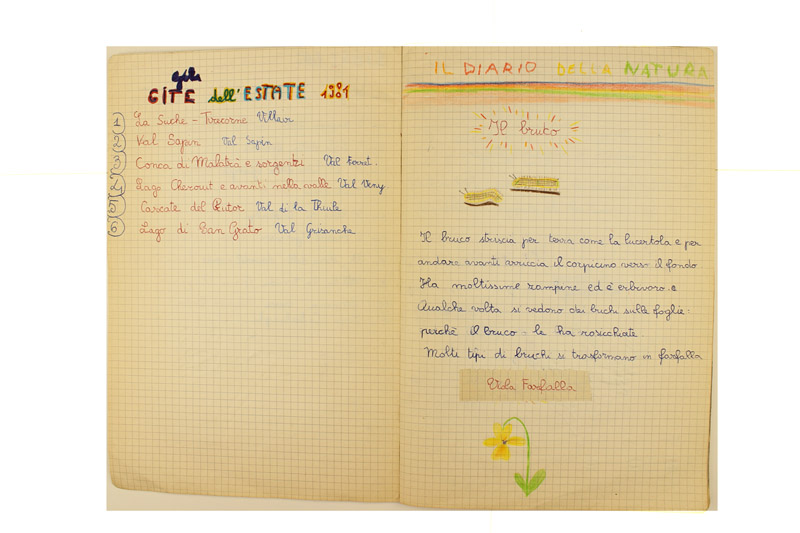 gita
GITE dell'ESTATE 1981
1 La Suche - Tirecorne Villair
2 Val Sapin Val Sapin
3 Conca di Malatrà e sorgenti Val Ferret.
4 Lago Cherout e avanti nella valle Val Veny
5 Cascate del Rutor Val di la Thuile
6 Lago di San Grato Val Grisanche
IL DIARIO DELLA NATURA
Il bruco
Il bruco striscia per terra come la lucertola e per
andare avanti arriccia il corpicino verso il fondo.
Ha moltissime zampine ed è erbivoro.
Qualche volta si vedono dei buchi sulle foglie:
perchè il bruco - le ha rosicchiate
Molti tipi di bruchi si trasformano in farfalla
Viola Farfalla